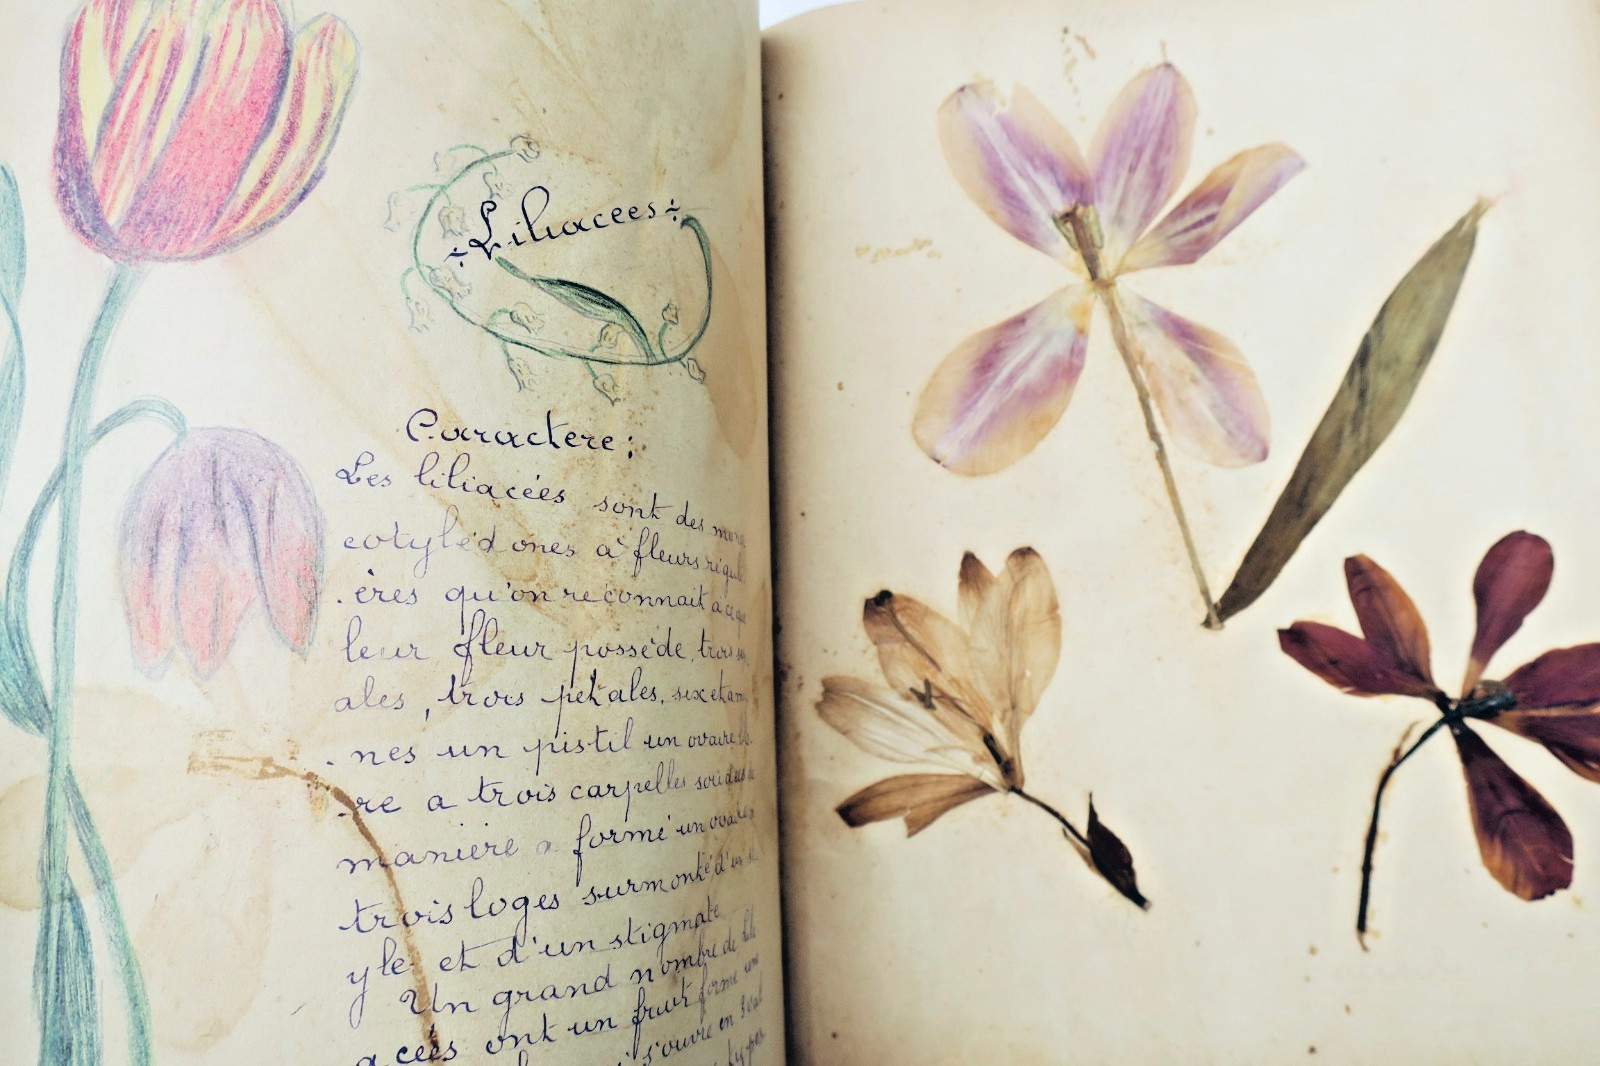 ÷ Liliacees ÷
Caractere :
Les liliacées sont des mono
cotylédones à fleurs régul
.ères qu'on reconnait a ce que
leur fleur possède, trois sep
ales, trois pétales, six etam
. nes un pistil un ovaire lib.
.re a trois carpelles soudées de
manière a formé un ovaire a
trois loges surmonté d'un st
yle et d'un stigmate
Un grand nombre de lili
acées ont un fruit formé une
s'ouvre en
types